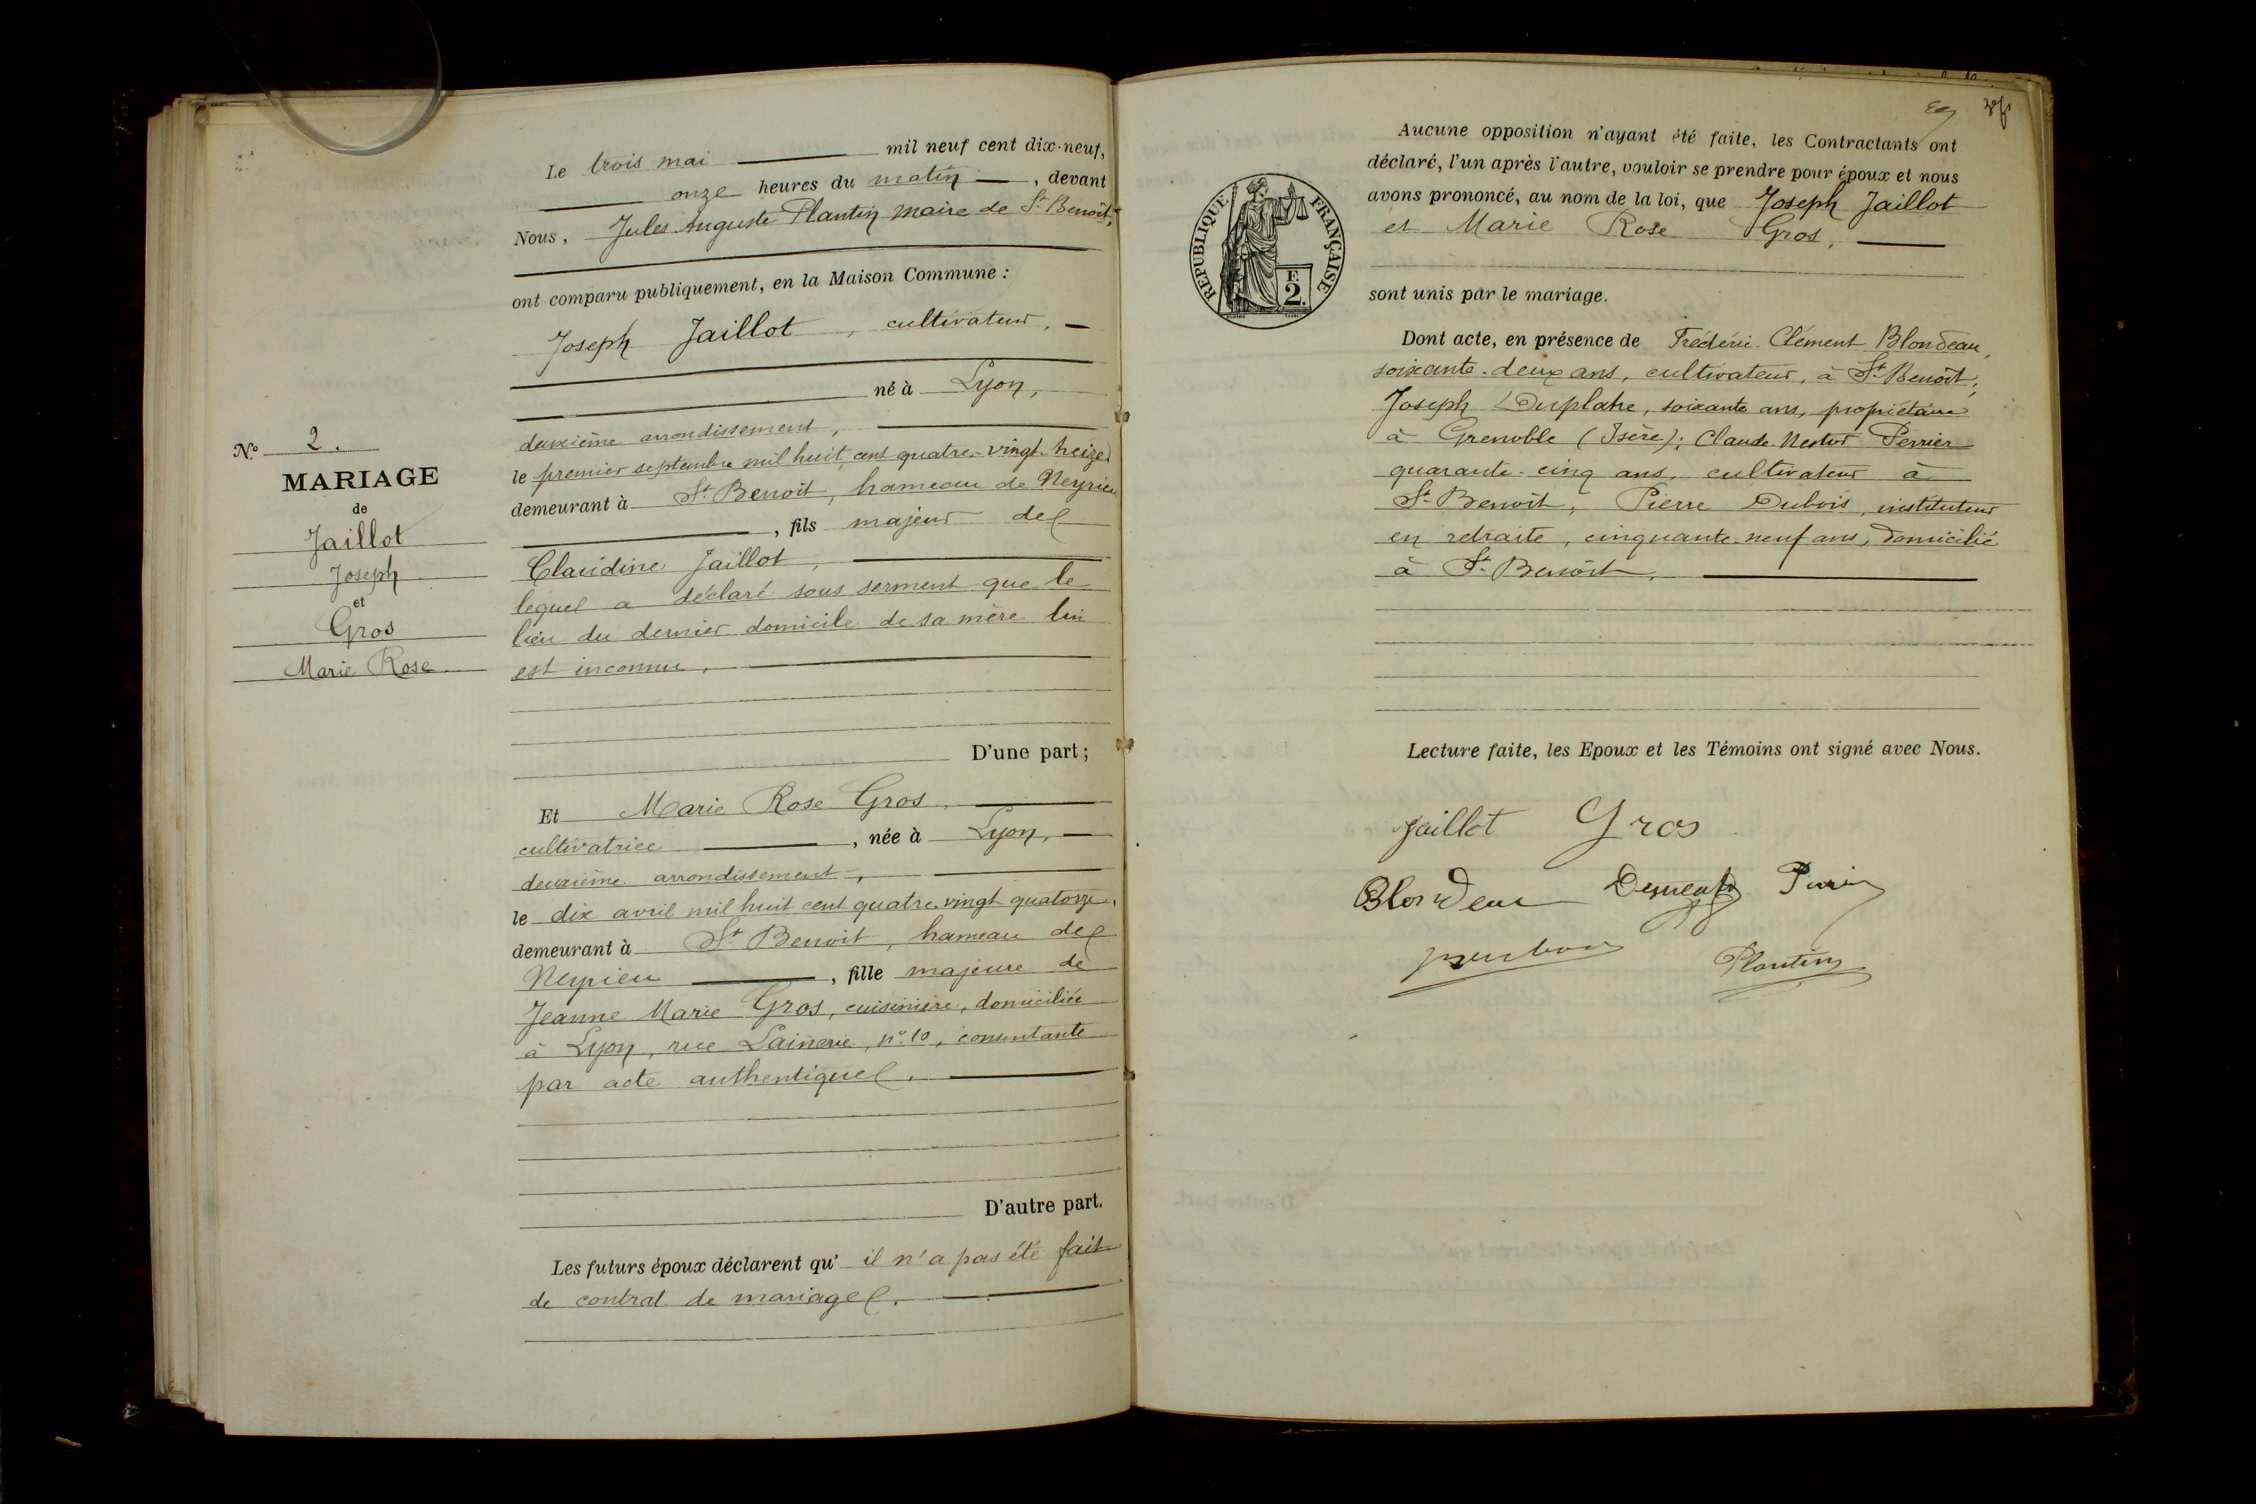 Le trois mai mil neuf cent dix-neuf,
onze heures du matin, devant
Nous, Jules Auguste Plantin maire de St Benoît,
ont comparu publiquement, en la Maison Commune :
Joseph Jaillot, cultivateur,
né à Lyon,
deuxième arrondissement,
le premier septembre mil huit cent quatre-vingt-treize
demeurant à St Benoit, hameau de Neyrieu
, fils majeur de
Claudine Jaillot,
lequel a déclaré sous serment que le
lieu du dernier domicile de sa mère lui
est inconnu,
D'une part ;
Et Marie Rose Gros,
cultivatrice, née à Lyon,
deuxième arrondissement,
le dix avril mil huit cent quatre-vingt quatorze,
demeurant à St Benoit, hameau de
Neyrieu, fille majeure de
Jeanne Marie Gros, cuisinière, domiciliée
à Lyon, rue Lainerie, n° 10, consentante
par acte authentique.
D'autre part.
Les futurs époux déclarent qu'il n'a pas été fait
de contrat de mariage.
N° 2.
MARIAGE
de
Jaillot
Joseph
et
Gros
Marie Rose
Aucune opposition n'ayant été faite, les Contractants ont
déclaré, l'un après l'autre, vouloir se prendre pour époux et nous
avons prononcé, au nom de la loi, que Joseph Jaillot
et Marie Rose Gros,
sont unis par le mariage.
Dont acte, en présence de Frédéric Clément Blondeau,
soixante-deux ans, cultivateur, à St Benoît,
Joseph soixante ans, propriétaire
à Grenoble (Isère); Claude Nestor Perrier
quarante-cinq ans, cultivateur à
St Benoît, Pierre Dubois, instituteur
en retraite, cinquante-neuf ans, domicilié
à St Benoît,
Lecture faite, les Epoux et les Témoins ont signé avec Nous.
Jaillot Gros
Blondeau
Plantin
REPUBLIQUE FRANÇAISE
F.
2.